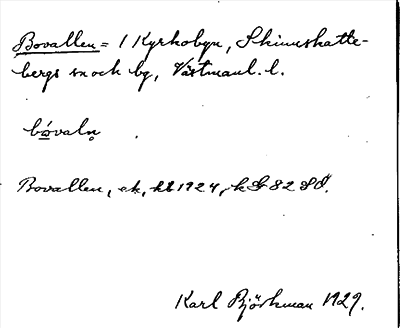 Bovallen = i Kyrkobyn, Skinnskatte-
bergs sn och bg, Västmanl. l.
bóvaln̥
Bovallen, ek, kl 1924, k G 82 SÖ.
Karl Björkman 1929.